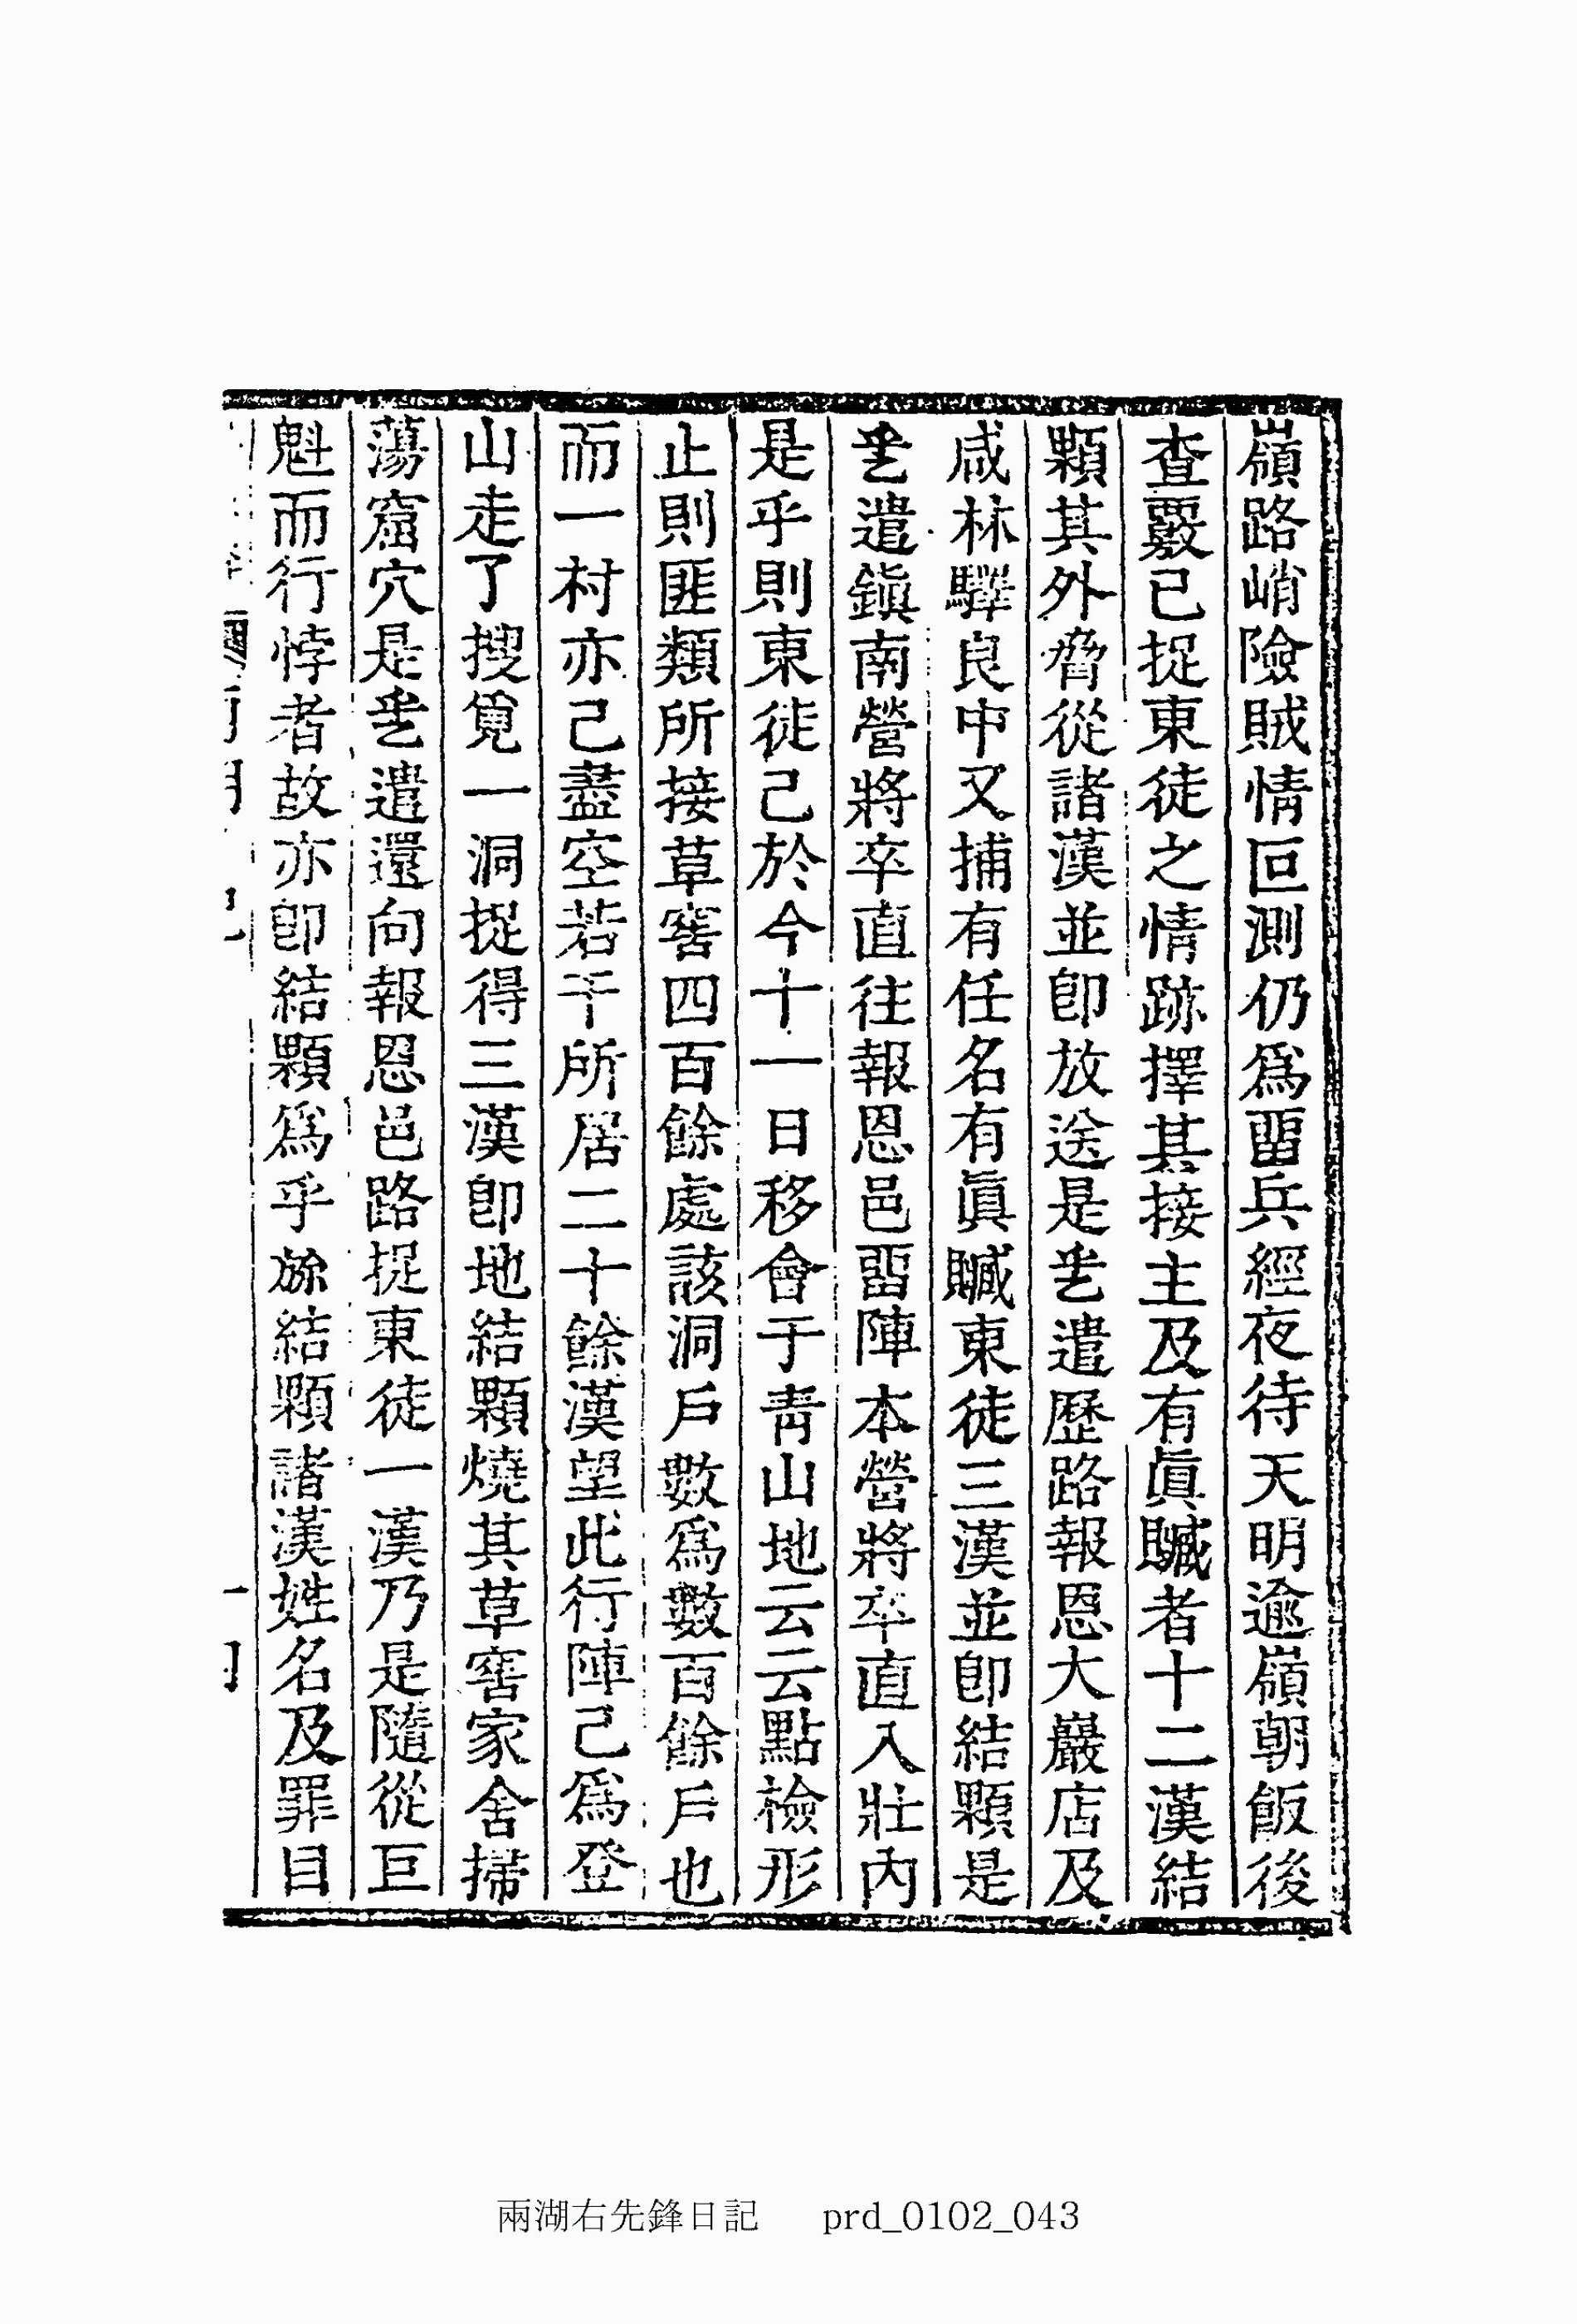 嶺路峭險賊情叵測仍爲畱兵經夜待天明逾嶺朝飯後
查覈已捉東徒之情跡擇其接主及有眞贓者十二漢結
顆其外脅從諸漢並卽放送是乧遣歷路報恩大巖店及
咸林驛良中又捕有任名有眞贓東徒三漢並卽結顆是
乧遣鎭南營將卒直往報恩邑畱陣本營將卒直入壯內
是乎則東徒己於今十一日移會于靑山地云云點檢形
止則匪類所接草窖四百餘處該洞戶數爲數百餘戶也
而一村亦己盡空若干所居二十餘漢望此行陣己爲登
山走了搜覓一洞捉得三漢卽地結顆燒其草窖家舍掃
蕩窟穴是乧遣還向報恩邑路捉東徒一漢乃是隨從巨
魁而行悖者故亦卽結顆爲乎旀結顆諸漢姓名及罪目
兩湖右先鋒日記 prd_0102_043